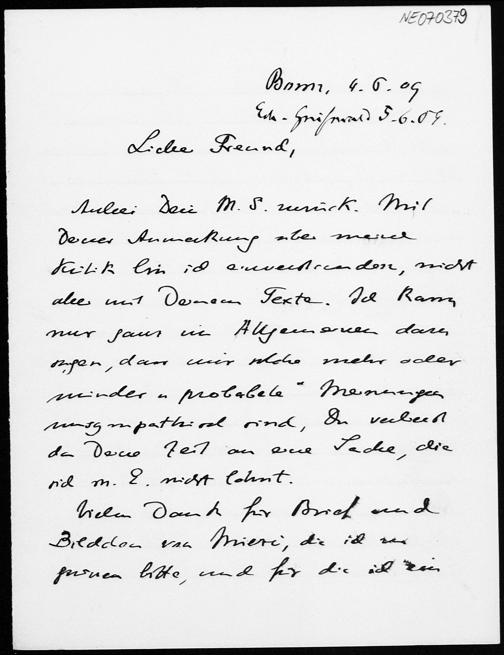 NE070379
Bonn, 4.6.09
Greifswald 5.6.09.
Lieber Freund,
Anbei Dein M.S. zurück. Mit
Deiner Anmerkung über meine
Kritik bin ich einverstanden, nicht
aber mit Deinem Texte. Ich kann
nur ganz im Allgemeinen dazu
sagen, dass mir solche mehr oder
minder „probabele“ Meinungen
unsympathisch sind, Du verlierst
da Deine Zeit an eine Sache, die
sich m. E. nicht lohnt.
Vielen Dank für Brief und
Bildchen von Mieze, die ich zu
grüssen bitte, und für die ich ein